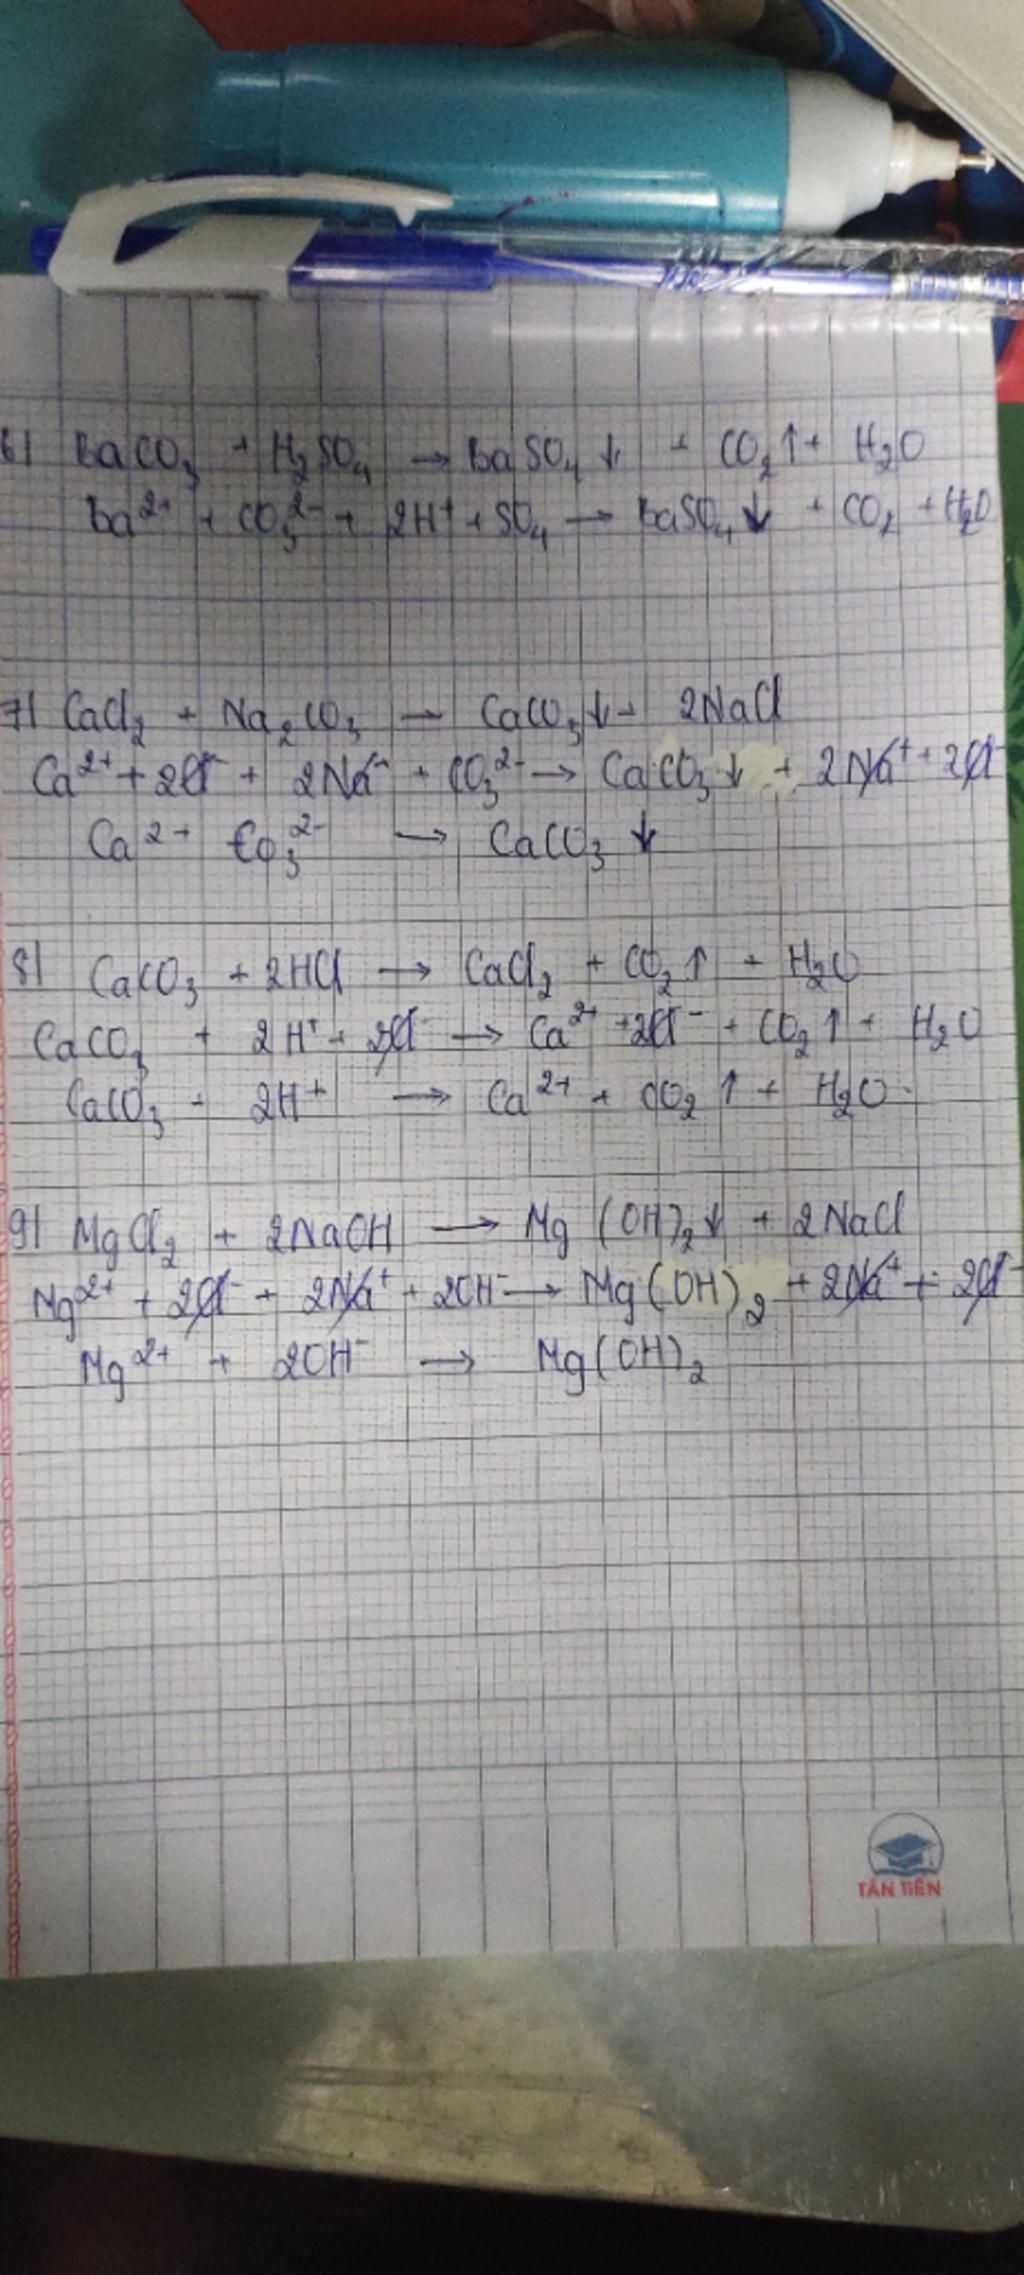 6) BaCO₃ + H₂SO₄ → BaSO₄↓ + CO₂↑ + H₂O
Ba²⁺ + CO₃²⁻ + 2H⁺ + SO₄ → BaSO₄↓ + CO₂ + H₂O
7) CaCl₂ + Na₂CO₃ → CaCO₃↓ - 2NaCl
Ca²⁺ + 2Cl⁻ + 2Na⁺ + CO₃²⁻ → CaCO₃↓ + 2Na⁺ + 2Cl⁻
Ca²⁺ CO₃²⁻ → CaCO₃↓
8) CaCO₃ + 2HCl → CaCl₂ + CO₂↑ + H₂O
CaCO₃ + 2H⁺ + 2Cl⁻ → Ca²⁺ + 2Cl⁻ + CO₂↑ + H₂O
CaCO₃ + 2H⁺ → Ca²⁺ + CO₂↑ + H₂O
9) MgCl₂ + 2NaOH → Mg(OH)₂↓ + 2NaCl
Mg²⁺ + 2Cl⁻ + 2Na⁺ + 2OH⁻ → Mg(OH)₂ + 2Na⁺ + 2Cl⁻
Mg²⁺ + 2OH⁻ → Mg(OH)₂
TÂN TIẾN